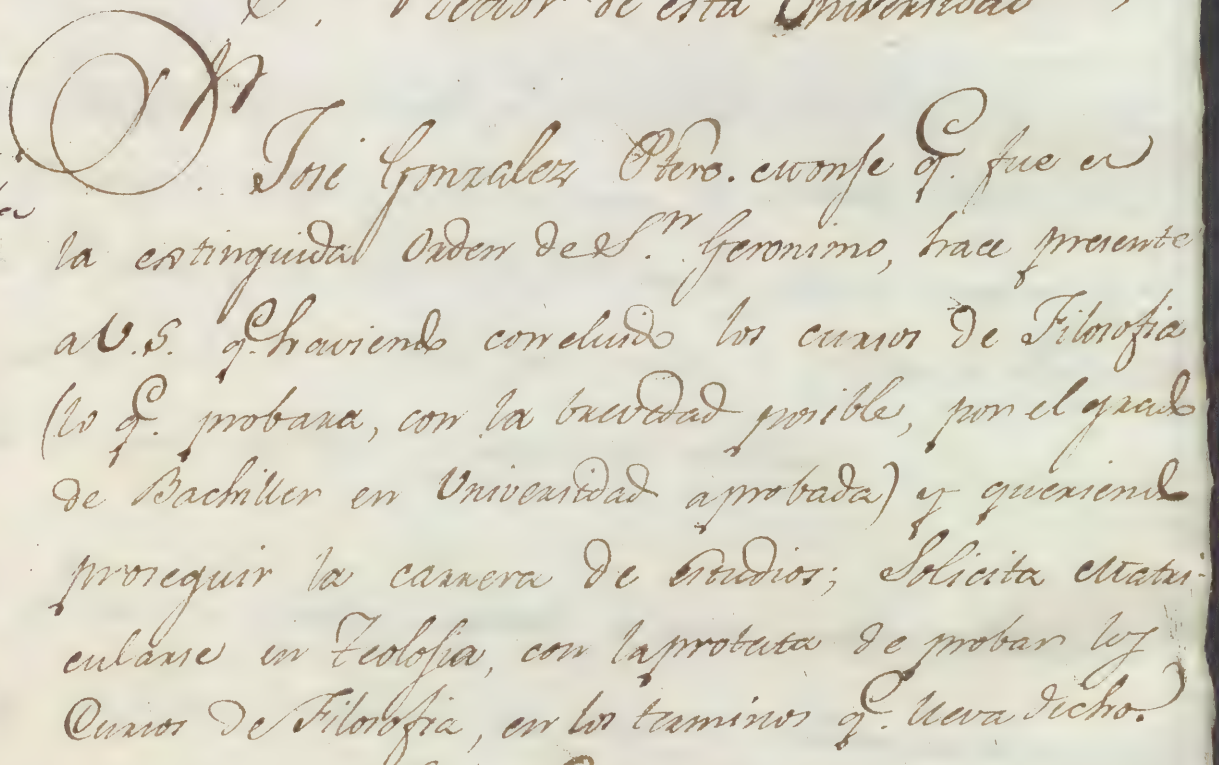 Rector de esta Universidad
D.n José Gonzalez Otero. Monje q.e fue en
la extinguida Orden de S.n Geronimo, hace presente
a V.S. q.e haviendo concluido los cursos de Filosofia
(lo q.e probara, con la brevedad posible, por el grado
de Bachiller en Universidad aprobada) y queriendo
proseguir la carrera de Estudios; Solicita Matri-
cularse en Teologia, con la protesta de probar los
Cursos de Filosofia, en los terminos q.e lleva dicho.